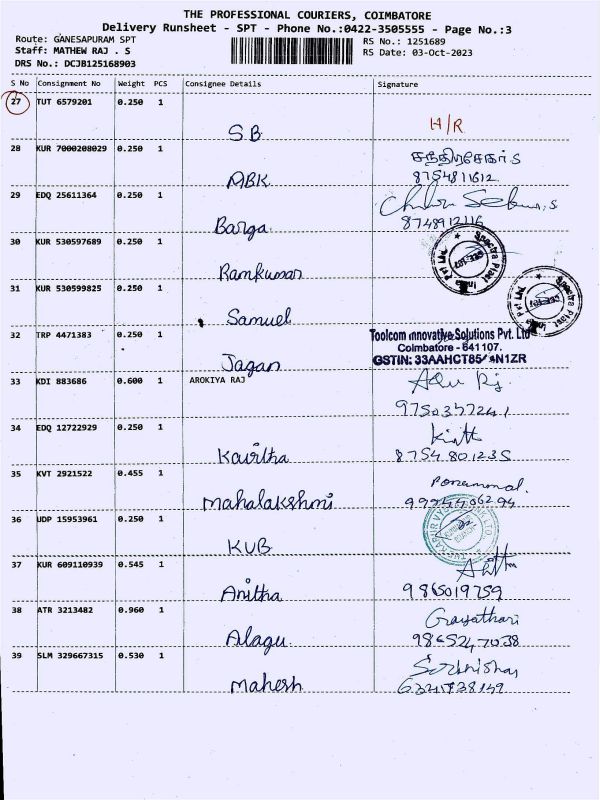 THE PROFESSIONAL COURIERS, COIMBATORE
Delivery Runsheet - SPT - Phone No.:0422-3505555 - Page No.:3
Route: GANESAPURAM SPT
RS No.: 1251689
Staff: MATHEW RAJ . S
RS Date: 03-Oct-2023
DRS No.: DCJB125168903
S No Consignment No Weight PCS Consignee Details Signature
27 TUT 6579201 0.250 1
SB H/R
28 KUR 7000208029 0.250 1
சந்திரசேகர் S
ABK 8754811612
29 EDQ 25611364 0.250 1
Barga 8748912116
30 KUR 530597689 0.250 1
Ramkumar
31 KUR 530599825 0.250 1
Samuel
32 TRP 4471383 0.250 1
Toolcom innovative Solutions Pvt. Ltd
Coimbatore - 641107.
Jagan
33 KDI 883686 0.600 1 AROKIYA RAJ
9750357241
34 EDQ 12722929 0.250 1
Kavitha 8754801235
35 KVT 2921522 0.455 1
Ponammal
Mahalakshmi
36 UDP 15953961 0.250 1
KVB
37 KUR 609110939 0.545 1
Anitha 9865019759
38 ATR 3213482 0.960 1
Gayathari
Alagu 9865247038
39 SLM 329667315 0.530 1
Mahesh